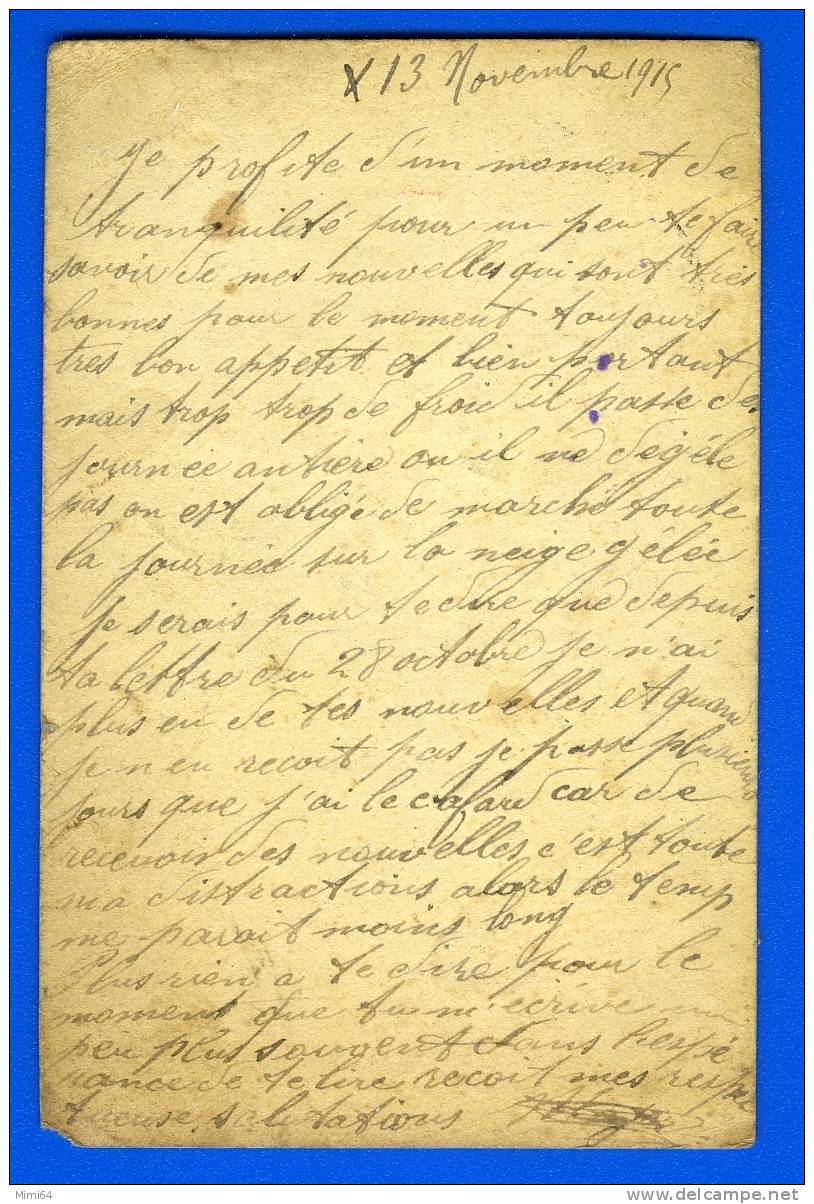 X 13 Novembre 1915
Je profite d'un moment de
tranquilité pour un peu te faire
savoir de mes nouvelles qui sont très
bonnes pour le moment toujours
tres bon appetit et bien portant
mais trop trop de froid il passe de
journée antière ou il ne dégéle
pas on est obligé de marché toute
la journée sur la neige gélée
je serais pour te dire que depuis
ta lettre du 28 octobre je n'ai
plus eu de tes nouvelles et quand
je n'en reçoit pas je passe plusieurs
jours que j'ai le cafard car de
recevoir des nouvelles c'est toute
ma distractions alors le temp
me parait moins long
Plus rien a te dire pour le
moment que tu m'ecrive un
peu plus souvent dans l'espé
rance de te lire reçoit mes respec
tueuse salutations
Mimi64
delcampe.net